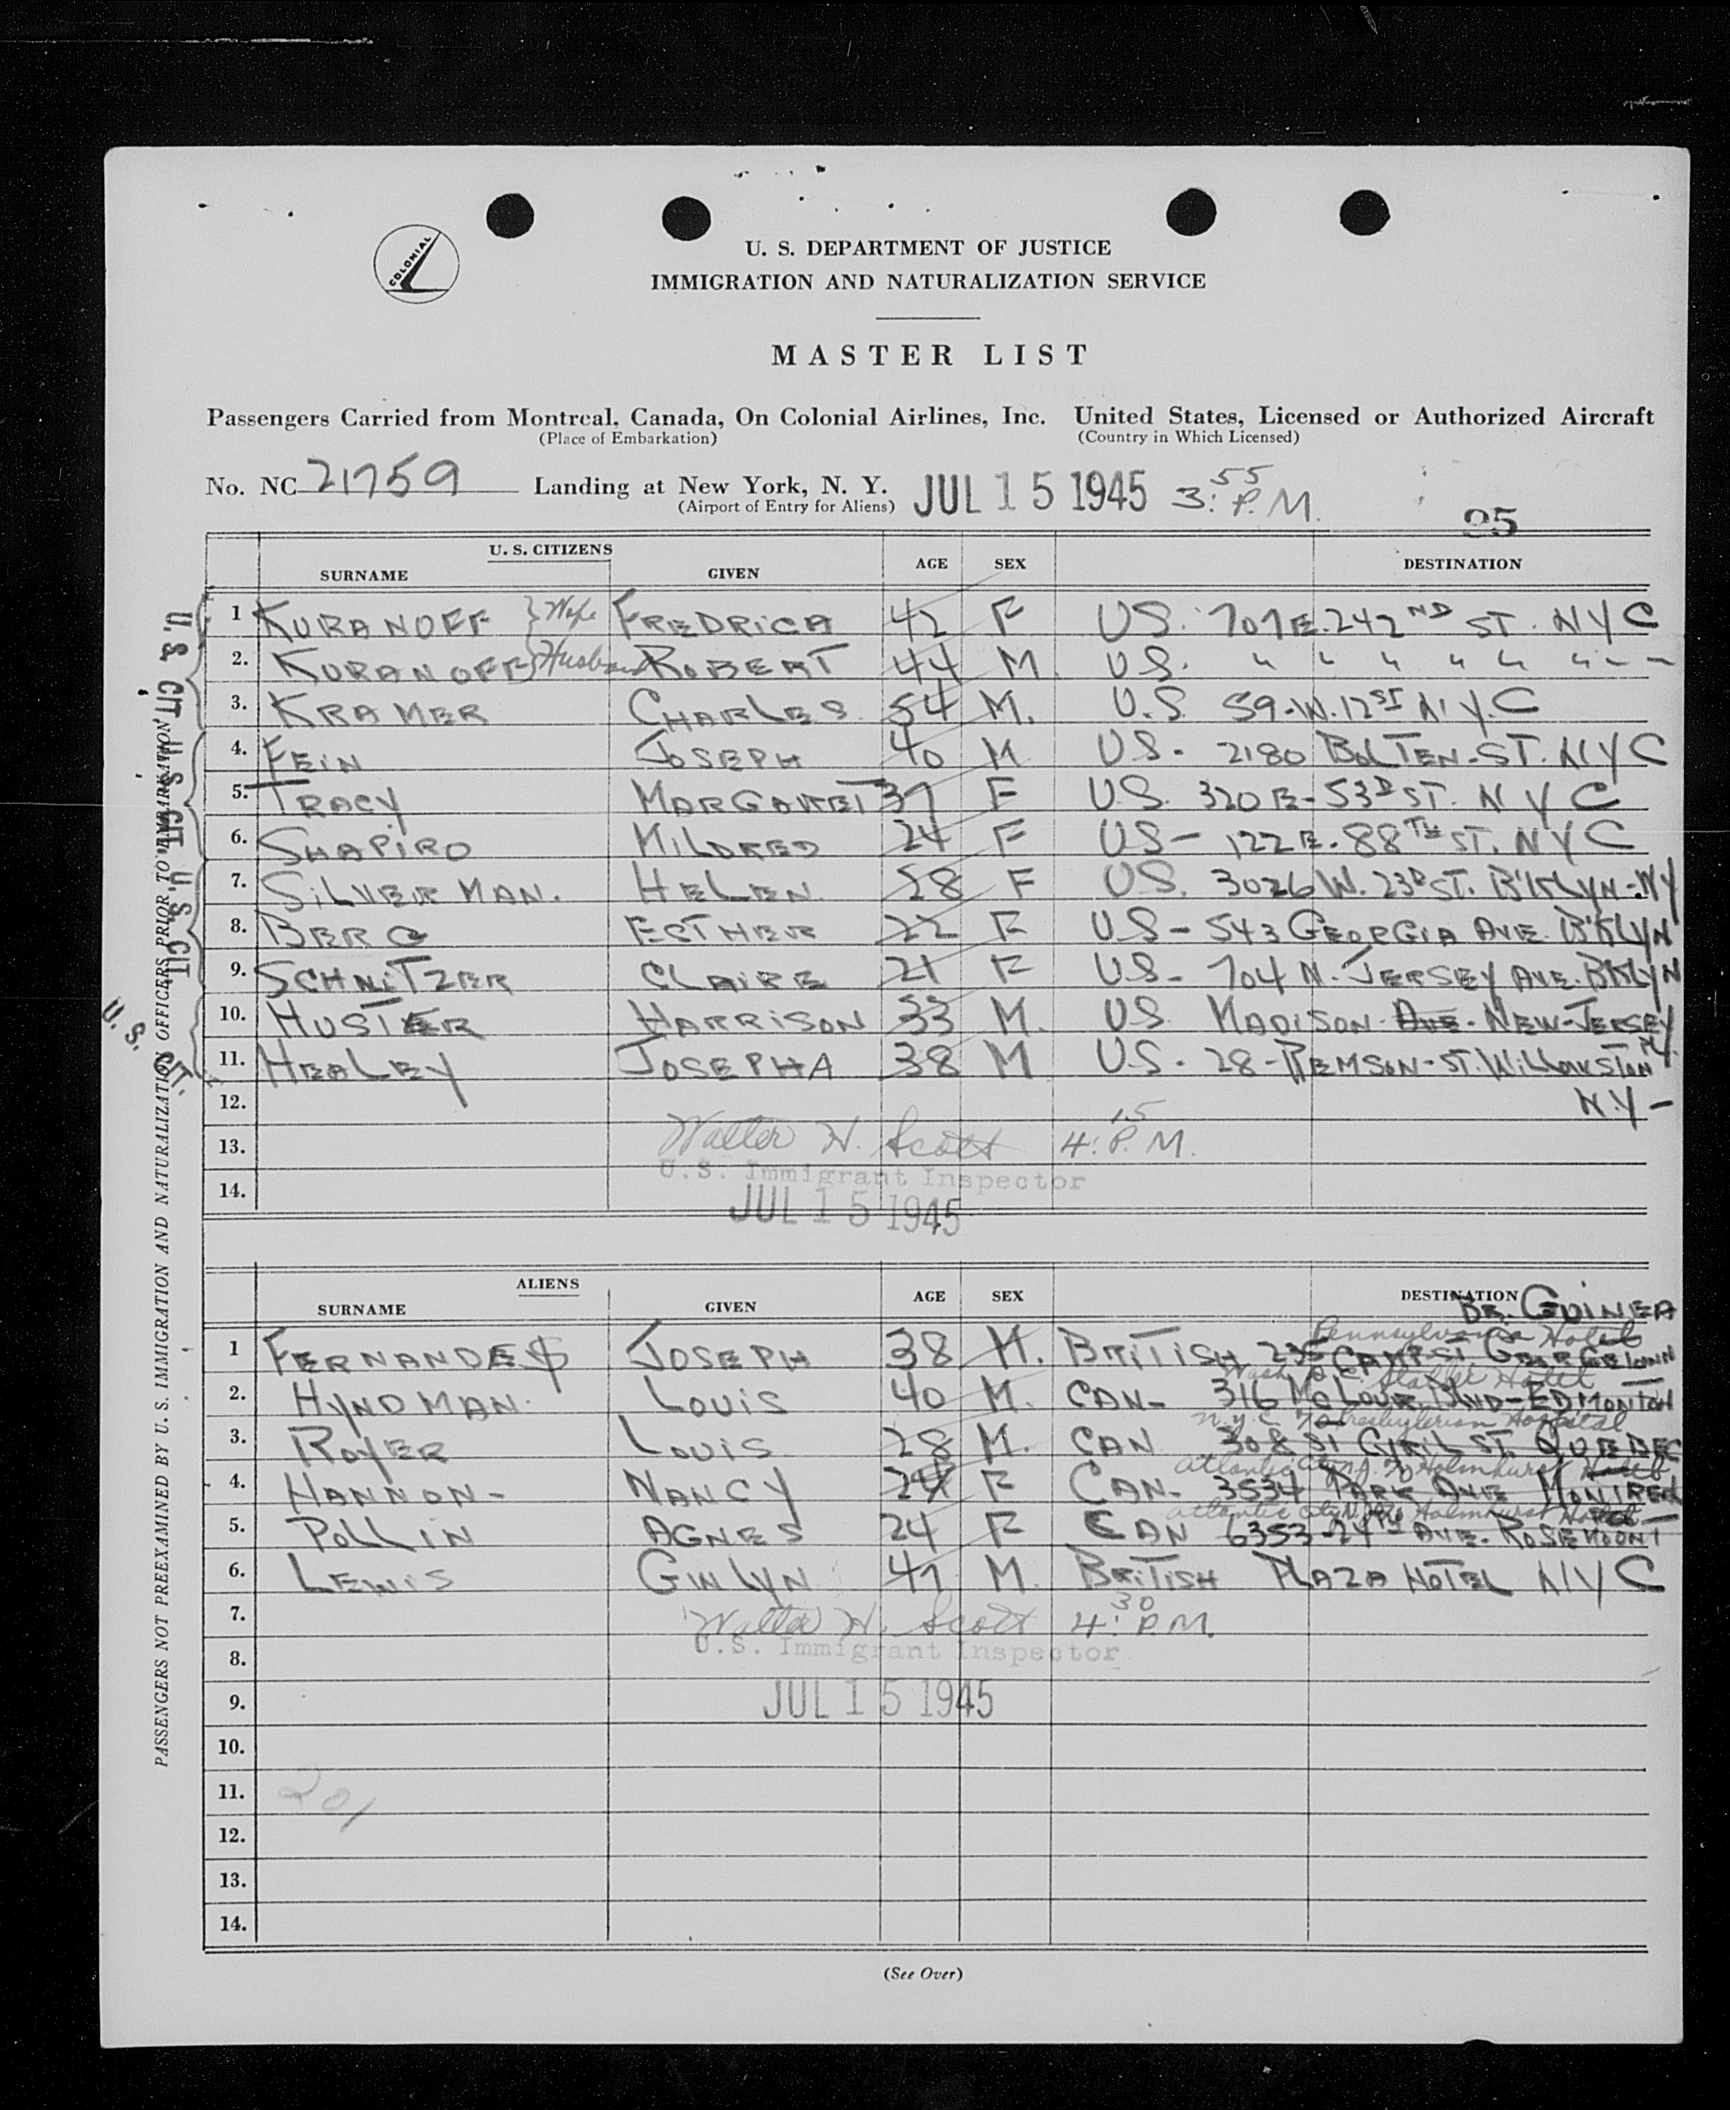 COLONIAL
U. S. DEPARTMENT OF JUSTICE
IMMIGRATION AND NATURALIZATION SERVICE
MASTER LIST
Passengers Carried from Montreal, Canada, On Colonial Airlines, Inc. United States, Licensed or Authorized Aircraft
(Place of Embarkation) (Country in Which Licensed)
No. NC 21759 Landing at New York, N. Y. JUL 15 1945 3:55 P.M.
(Airport of Entry for Aliens)
95
U. S. CITIZENS
SURNAME GIVEN AGE SEX DESTINATION
1 KURANOFF } Wife FREDRICA 42 F US. 707 E. 242ND ST. NYC
2. KURANOFF } Husband ROBERT 44 M US. " " " " " " - -
3. KRAMER CHARLES 54 M. U.S 59-W. 12ST N.Y.C
4. FEIN JOSEPH 40 M US- 2180 BOLTEN-ST. NYC
5. TRACY MARGARET 37 F U.S. 320 E-53D ST. NYC
6. SHAPIRO MILDRED 24 F US- 122 E. 88TH ST. NYC
7. SILVERMAN. HELEN 28 F US. 3026 W. 23D ST. B'KLYN-NY
8. BERG ESTHER 22 F US- 543 GEORGIA AVE. B'KLYN
9. SCHNITZER CLAIRE 21 F US- 704 N. JERSEY AVE. BKLYN
10. HUSTER HARRISON 33 M. US MADISON AVE. NEW-JERSEY
11. HEALEY JOSEPH A 38 M U.S. 28-REMSON-ST.
12. N.Y-
13. Walter H. Scott 4:15 P.M.
U.S. Immigrant Inspector
14.
JUL 15 1945
U. S. CIT. U. S. CIT. U. S. CIT.
U. S. CIT.
PASSENGERS NOT PREEXAMINED BY U. S. IMMIGRATION AND NATURALIZATION OFFICERS PRIOR TO EMBARKATION
ALIENS
SURNAME GIVEN AGE SEX DESTINATION
BR. GUINEA
Pennsylvania Hotel
1 FERNANDES JOSEPH 38 M. BRITISH 235 CAMP ST
Wash D.C. Statler Hotel
2. HYNDMAN. LOUIS 40 M. CAN- 316 EDMONTON
N.Y.C. Presbyterian Hospital
3. ROYER LOUIS 28 M. CAN 308 ST CYRIL ST. QUEBEC
Atlantic City N.J. Holmhurst Hotel
4. HANNON- NANCY 24 F CAN- 3534 PARK AVE MONTREAL
Atlantic City N.J. Holmhurst Hotel
5. POLLIN AGNES 24 F CAN 6353-24TH AVE. ROSEMOUNT
6. LEWIS GWLYN 47 M. BRITISH PLAZA HOTEL NYC
7. Walter H. Scott 4:30 P.M.
U.S. Immigrant Inspector
8.
9. JUL 15 1945
10.
11. 201
12.
13.
14.
(See Over)